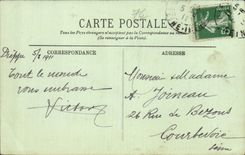 CARTE POSTALE
Tous les Pays étrangers n'acceptent pas la Correspondance au recto
(Se renseigner à la Poste)
CORRESPONDANCE
ADRESSE
Dieppe 5/2 1911
Tout le monde
vous embrasse
Victor
Monsieur Madame
A Joineau
26 Rue de Bezons
Courbevoie
Seine